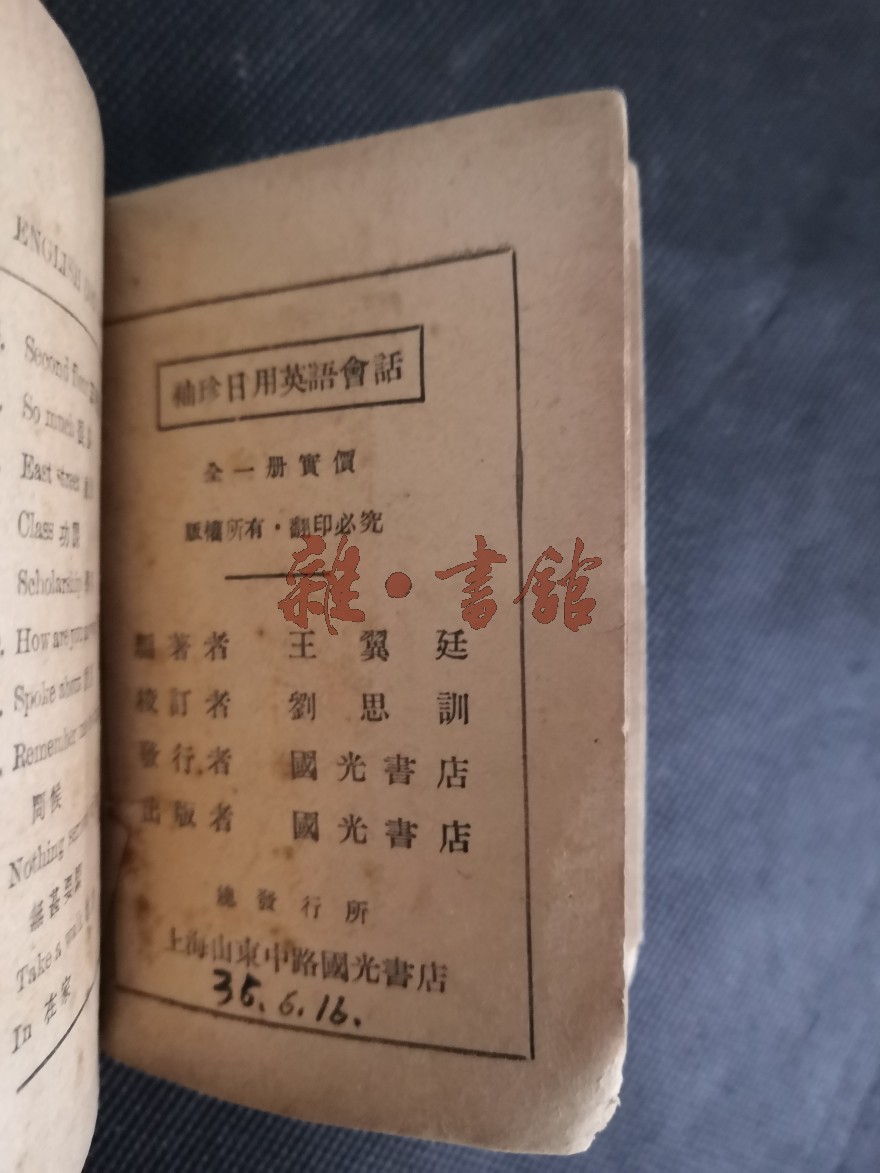 ENGLISH
Second floor
So much
East street
Class 功課
Scholarship
How are you
Spoke about
Remember me
問候
Nothing
無甚要緊
Take a walk
In 在家
袖珍日用英語會話
全一册實價
版權所有・翻印必究
雜・書館
編著者 王翼廷
校訂者 劉思訓
發行者 國光書店
出版者 國光書店
總發行所
上海山東中路國光書店
35.6.16.